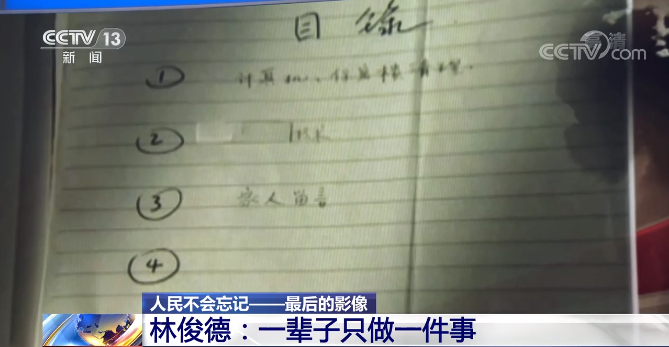 CCTV 13
新闻
CCTV.com
高清
目录
① 计算机、保密
②
③ 家人留言
④
人民不会忘记——最后的影像
林俊德：一辈子只做一件事